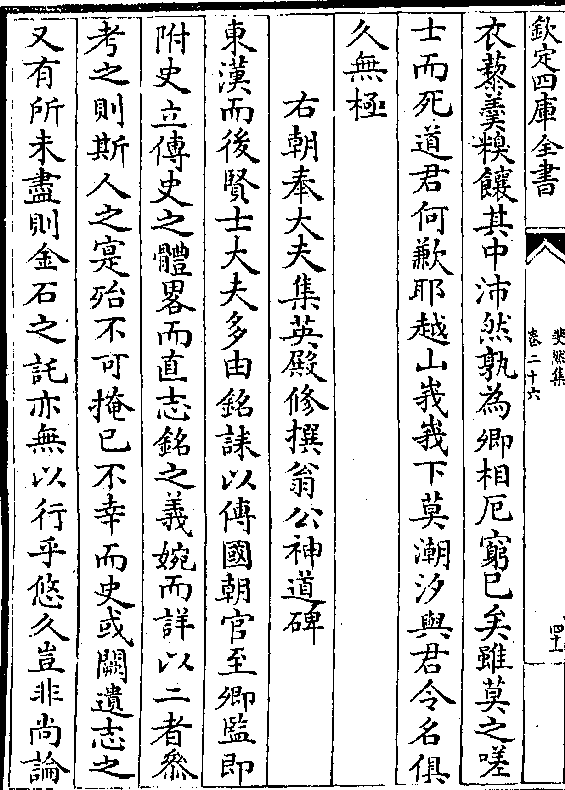 欽定四庫全書
斐然集
卷二十六
四十
衣藜羮糗饟其中沛然孰為卿相厄窮已矣雖莫之嗟
士而死道君何歉耶越山峩峩下莫潮汐與君令名俱
久無極
右朝奉大夫集英殿修撰翁公神道碑
東漢而後賢士大夫多由銘誄以傳國朝官至卿監即
附史立傳史之體畧而直志銘之義婉而詳以二者叅
考之則斯人之寔殆不可掩已不幸而史或闕遺志之
又有所未盡則金石之託亦無以行乎悠久豈非尚論